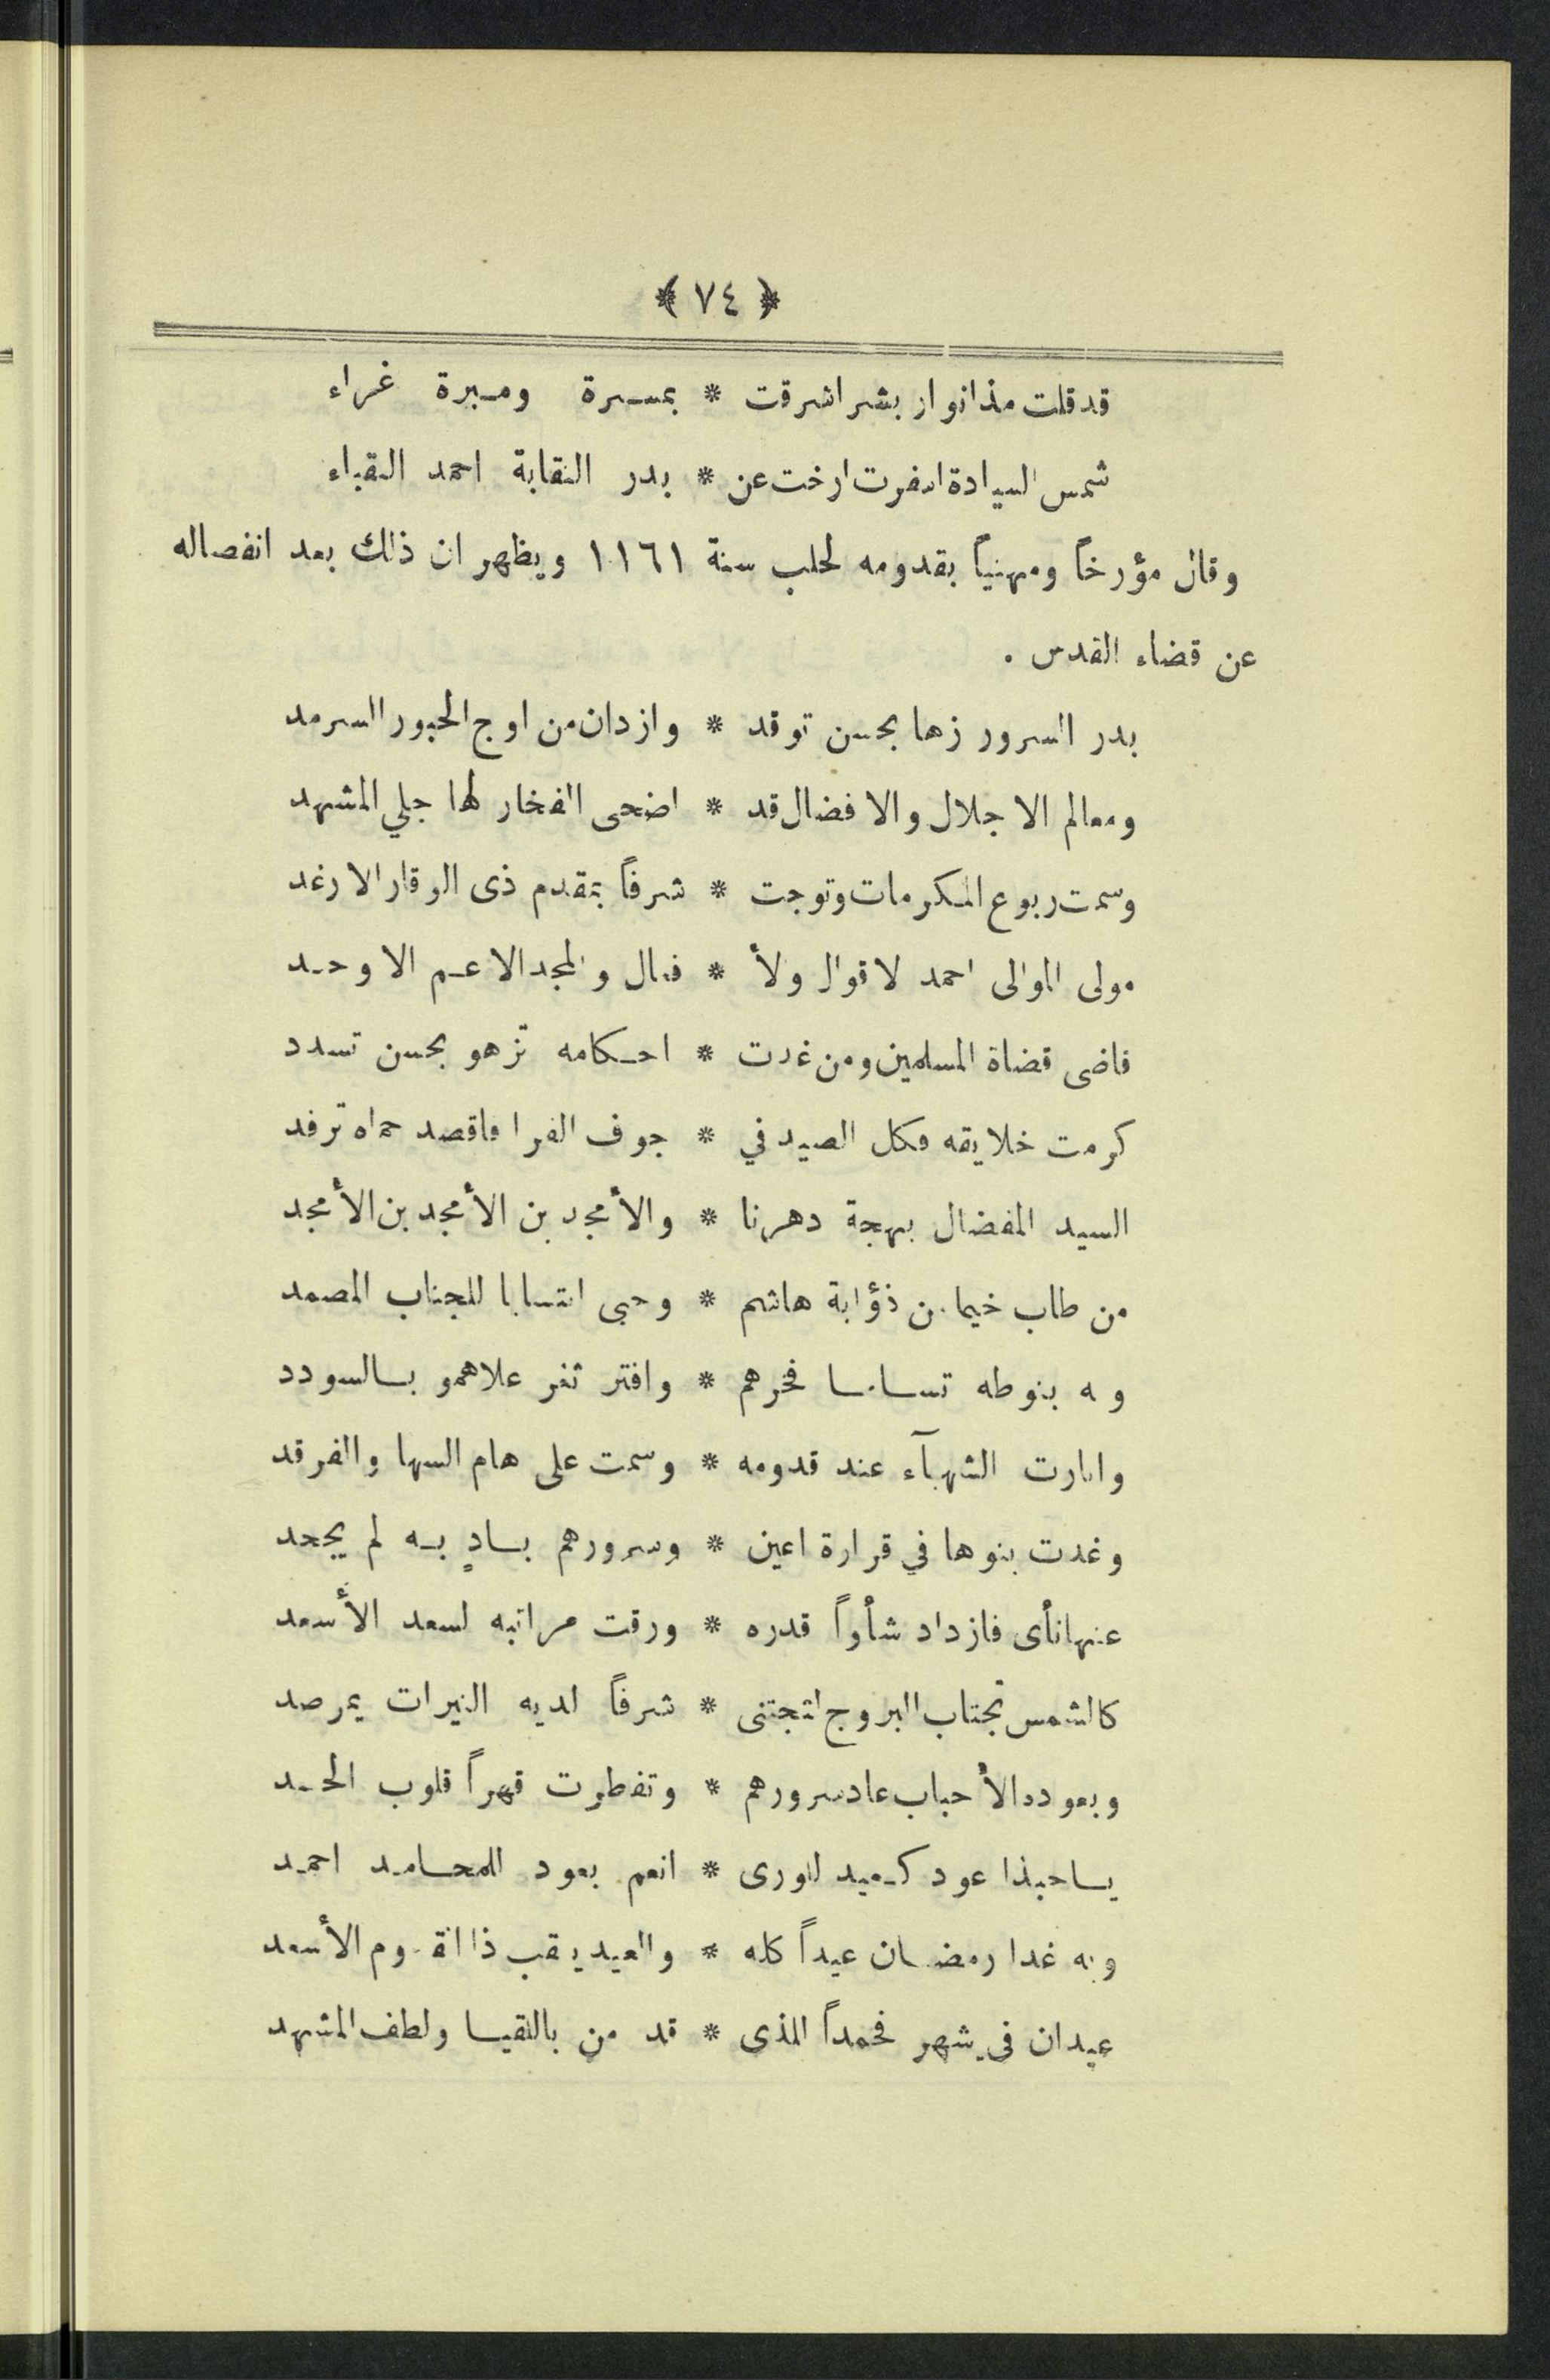 ﴿ ٧٤ ﴾
قد قلت مذ انوار بشر اشرقت * بمسرة ومبرة غراء
شمس السيادة اسفرت ارخت عن * بدر النقابة احمد النقباء
وقال مؤرخاً ومهنياً بقدومه لحلب سنة ١١٦١ ويظهر ان ذلك بعد انفصاله
عن قضاء القدس .
بدر السرور زها بحسن توقد * وازدان من اوج الحبور السرمد
ومعالم الاجلال والافضال قد * اضحى الفخار لها جلي المشهد
وسمت ربوع المكرمات وتوجت * شرفاً بمقدم ذى الوقار الارغد
مولى الموالى احمد لاقوال ولأ * فعال والمجد الاعم الاوحد
قاضى قضاة المسلمين ومن غدت * احكامه تزهو بحسن تسدد
كرمت خلايقه فكل الصيد في * جوف الفرا فاقصد حماه ترفد
السيد المفضال بهجة دهرنا * والأمجد بن الأمجد بن الأمجد
من طاب خيما من ذؤابة هاشم * وحبى انتسابا للجناب المصمد
وبه بنو طه تسامـا فخرهم * وافتر ثغر علاهمو بالسودد
وانارت الشهبآء عند قدومه * وسمت على هام السها والفرقد
وغدت بنوها في قرارة اعين * وسرورهم بادٍ به لم يجحد
عنها نأى فازداد شأواً قدره * ورقت مراتبه لسعد الأسعد
كالشمس تجتاب البروج لتجتنى * شرفاً لديه النيرات بمرصد
وبعوده الأحباب عاد سرورهم * وتفطرت قهراً قلوب الحسد
يا حبذا عود كعيد للورى * انعم بعود للمحامد احمد
وبه غدا رمضان عيداً كله * والعيد يعقب ذا القدوم الأسعد
عيدان في شهر فحمداً للذى * قد من باللقيا ولطف المشهد